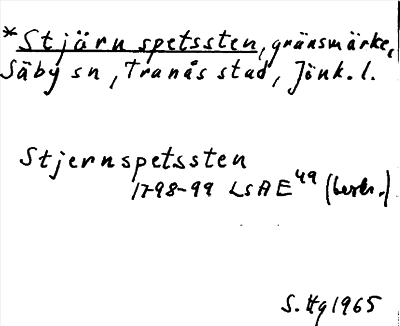 *Stjärnspetssten, gränsmärke,
Säby sn, Tranås stad, Jönk. l.
Stjernspetssten
1798-99 LSA E49 (beskr.)
S. Hg 1965